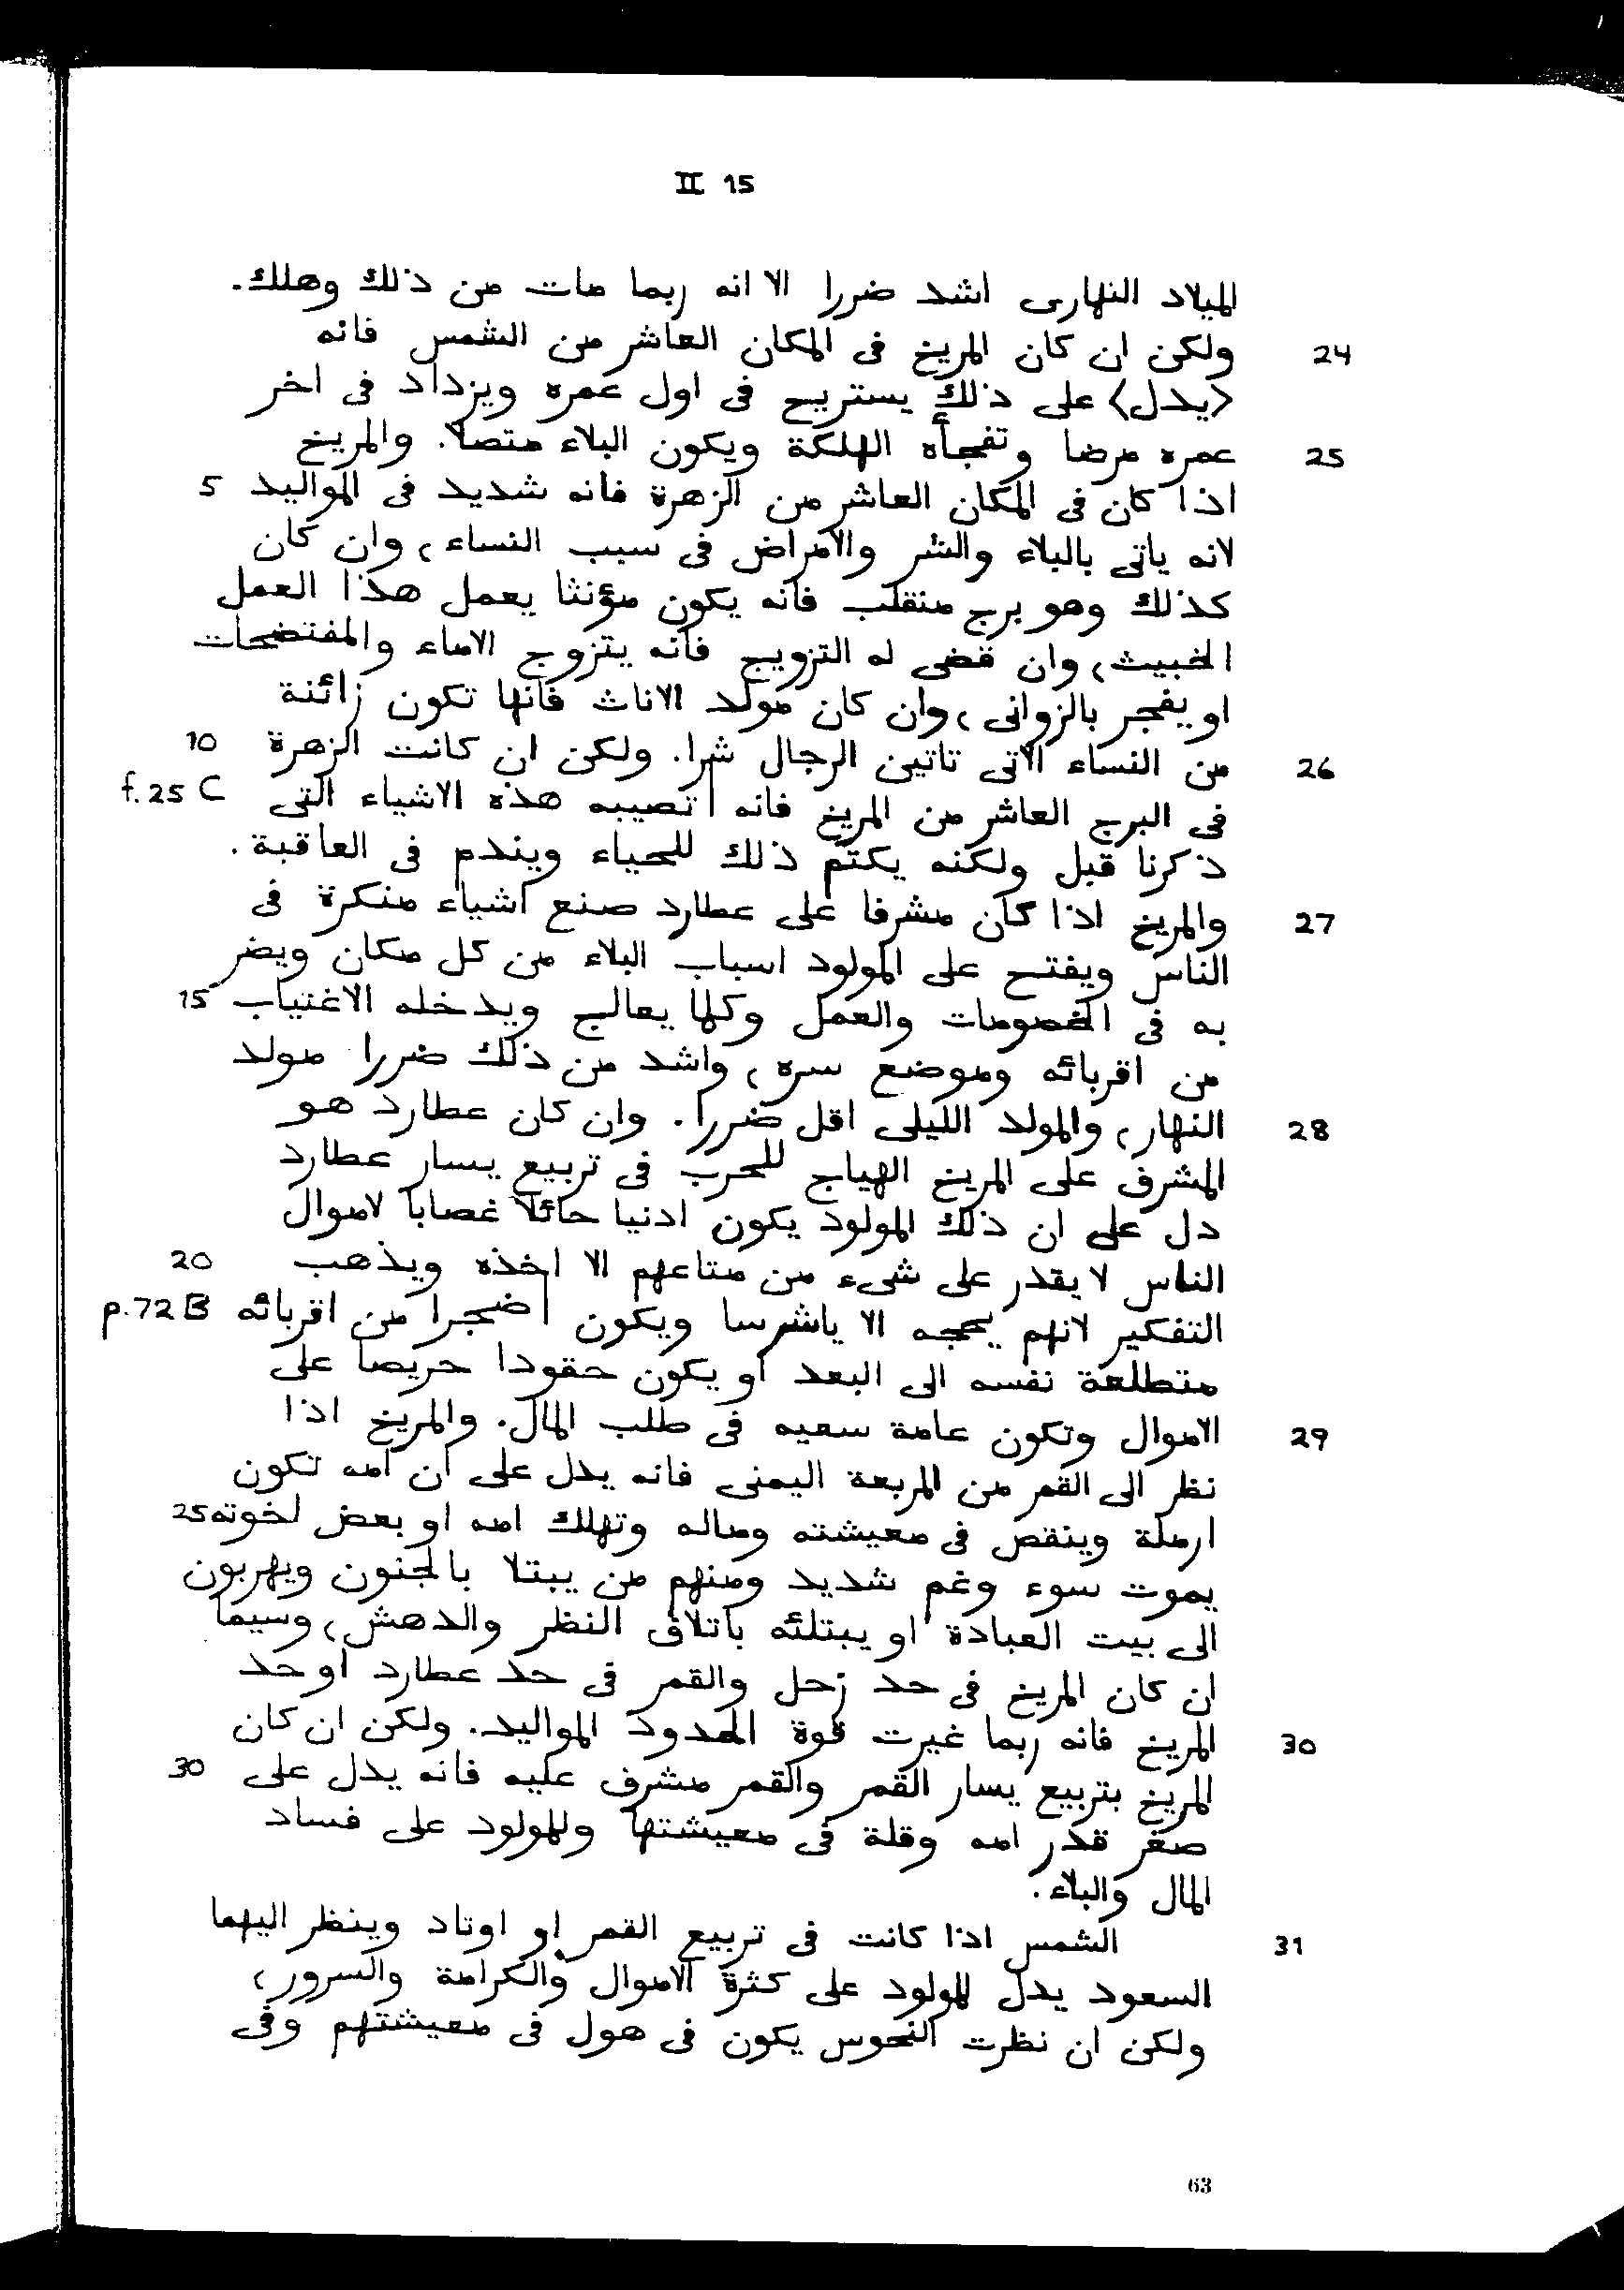 II 15
الميلاد النهارى اشد ضررا الا انه ربما مات من ذلك وهلك.
24 ولكن ان كان المريخ فى المكان العاشر من الشمس فانه
<يدل> على ذلك يستريح فى اول عمره ويزداد فى اخر
25 عمره مرضا وتفجأه الهلكة ويكون البلاء متصلا. والمريخ
اذا كان فى المكان العاشر من الزهرة فانه شديد فى المواليد 5
لانه ياتى بالبلاء والشر والامراض فى سبب النساء، وان كان
كذلك وهو برج منقلب فانه يكون مؤنثا يعمل هذا العمل
الخبيث، وان قضى له التزويج فانه يتزوج الاماء والمفتضحات
او يفجر بالزوانى، وان كان مولد الاناث فانها تكون زائنة
26 من النساء الاتى تاتين الرجال شرا. ولكن ان كانت الزهرة 10
فى البرج العاشر من المريخ فانه | تصيبه هذه الاشياء التى f.25 C
ذكرنا قبل ولكنه يكتم ذلك للحياء ويندم فى العاقبة.
27 والمريخ اذا كان مشرفا على عطارد صنع اشياء منكرة فى
الناس ويفتح على المولود اسباب البلاء من كل مكان ويضر
به فى الخصومات والعمل وكلها يعالج ويدخله الاغتياب 15
من اقربائه وموضع سره، واشد من ذلك ضررا مولد
28 النهار، والمولد الليلى اقل ضررا. وان كان عطارد هو
المشرف على المريخ الهياج للحرب فى تربيع يسار عطارد
دل على ان ذلك المولود يكون ادنيا حائلا غصابا لاموال
الناس لا يقدر على شىء من متاعهم الا اخذه ويذهب 20
التفكير لانهم يحجه الا ياشرسا ويكون | ضجرا من اقربائه p.72 B
متطلعة نفسه الى البعد او يكون حقودا حريصا على
29 الاموال وتكون عامة سعيه فى طلب المال. والمريخ اذا
نظر الى القمر من المربعة اليمنى فانه يدل على ان امه تكون
ارملة وينقص فى معيشته وماله وتهلك امه او بعض لخوته 25
يموت سوء وغم شديد ومنهم من يبتلا بالجنون ويهربون
الى بيت العبادة او يبتلئه باتلاف النظر والدهش، وسيما
ان كان المريخ فى حد زحل والقمر فى حد عطارد او حد
30 المريخ فانه ربما غيرت قوة الحدود المواليد. ولكن ان كان
المريخ بتربيع يسار القمر والقمر مشرف عليه فانه يدل على 30
صغر قدر امه وقلة فى معيشتها وللمولود على فساد
المال والبلاء.
31 الشمس اذا كانت فى تربيع القمر او اوتاد وينظر اليهما
السعود يدل للمولود على كثرة الاموال والكرامة والسرور،
ولكن ان نظرت النحوس يكون فى هول فى معيشتهم وفى
63